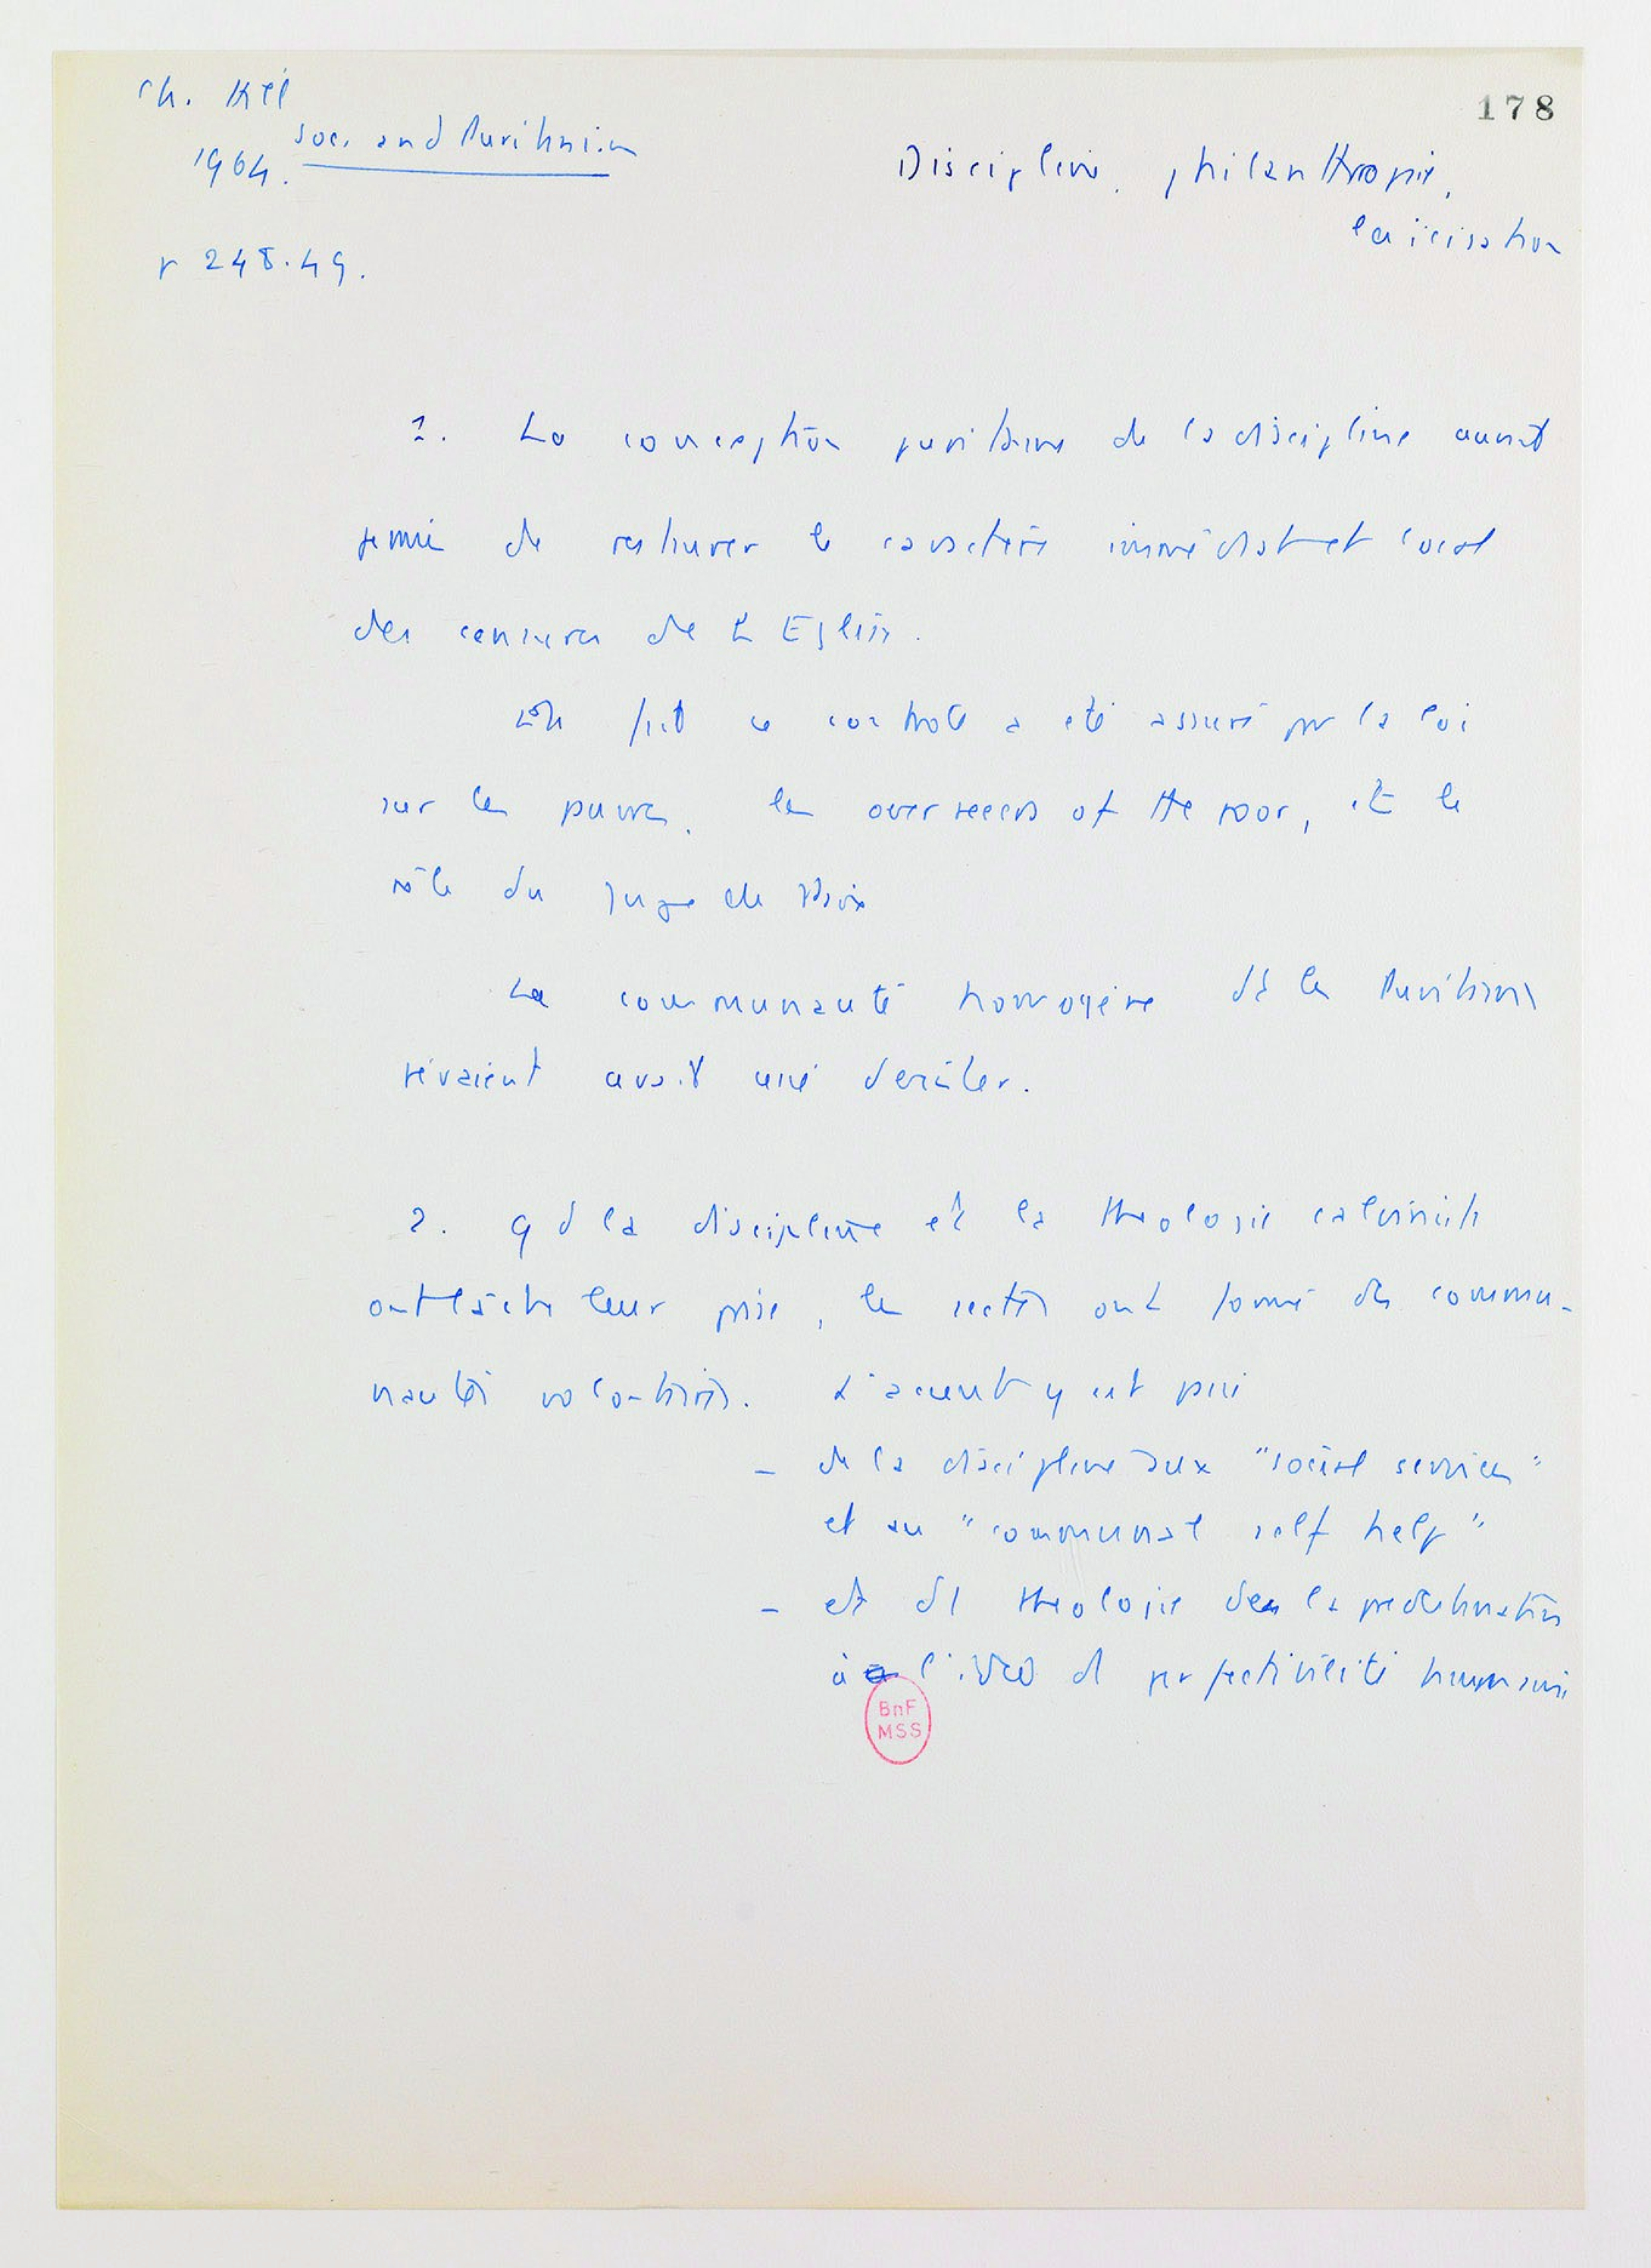 Ch. Hill
Soc. and Puritanism
1964.
p 248.49.
178
Discipline, philanthropie,
laïcisation
1. La conception puritaine de la discipline aurait
permis de restaurer le caractère immédiat et local
des censures de l'Eglise.
En fait ce controle a été assuré par la loi
sur les pauvres, les overseers of the poor, et le
rôle du Juge de Paix
La communauté homogène dt les Puritains
rêvaient avait cessé d'exister.
2. Qd la discipline et la theologie calviniste
ont laché leur prise, les sectes ont formé des commu-
nautés volontaires. L'accent y est passé
- de la discipline aux "social services"
et au "communal self help"
- et dl theologie de la predestination
à l'idée dl perfectibilité humaine
BnF
MSS